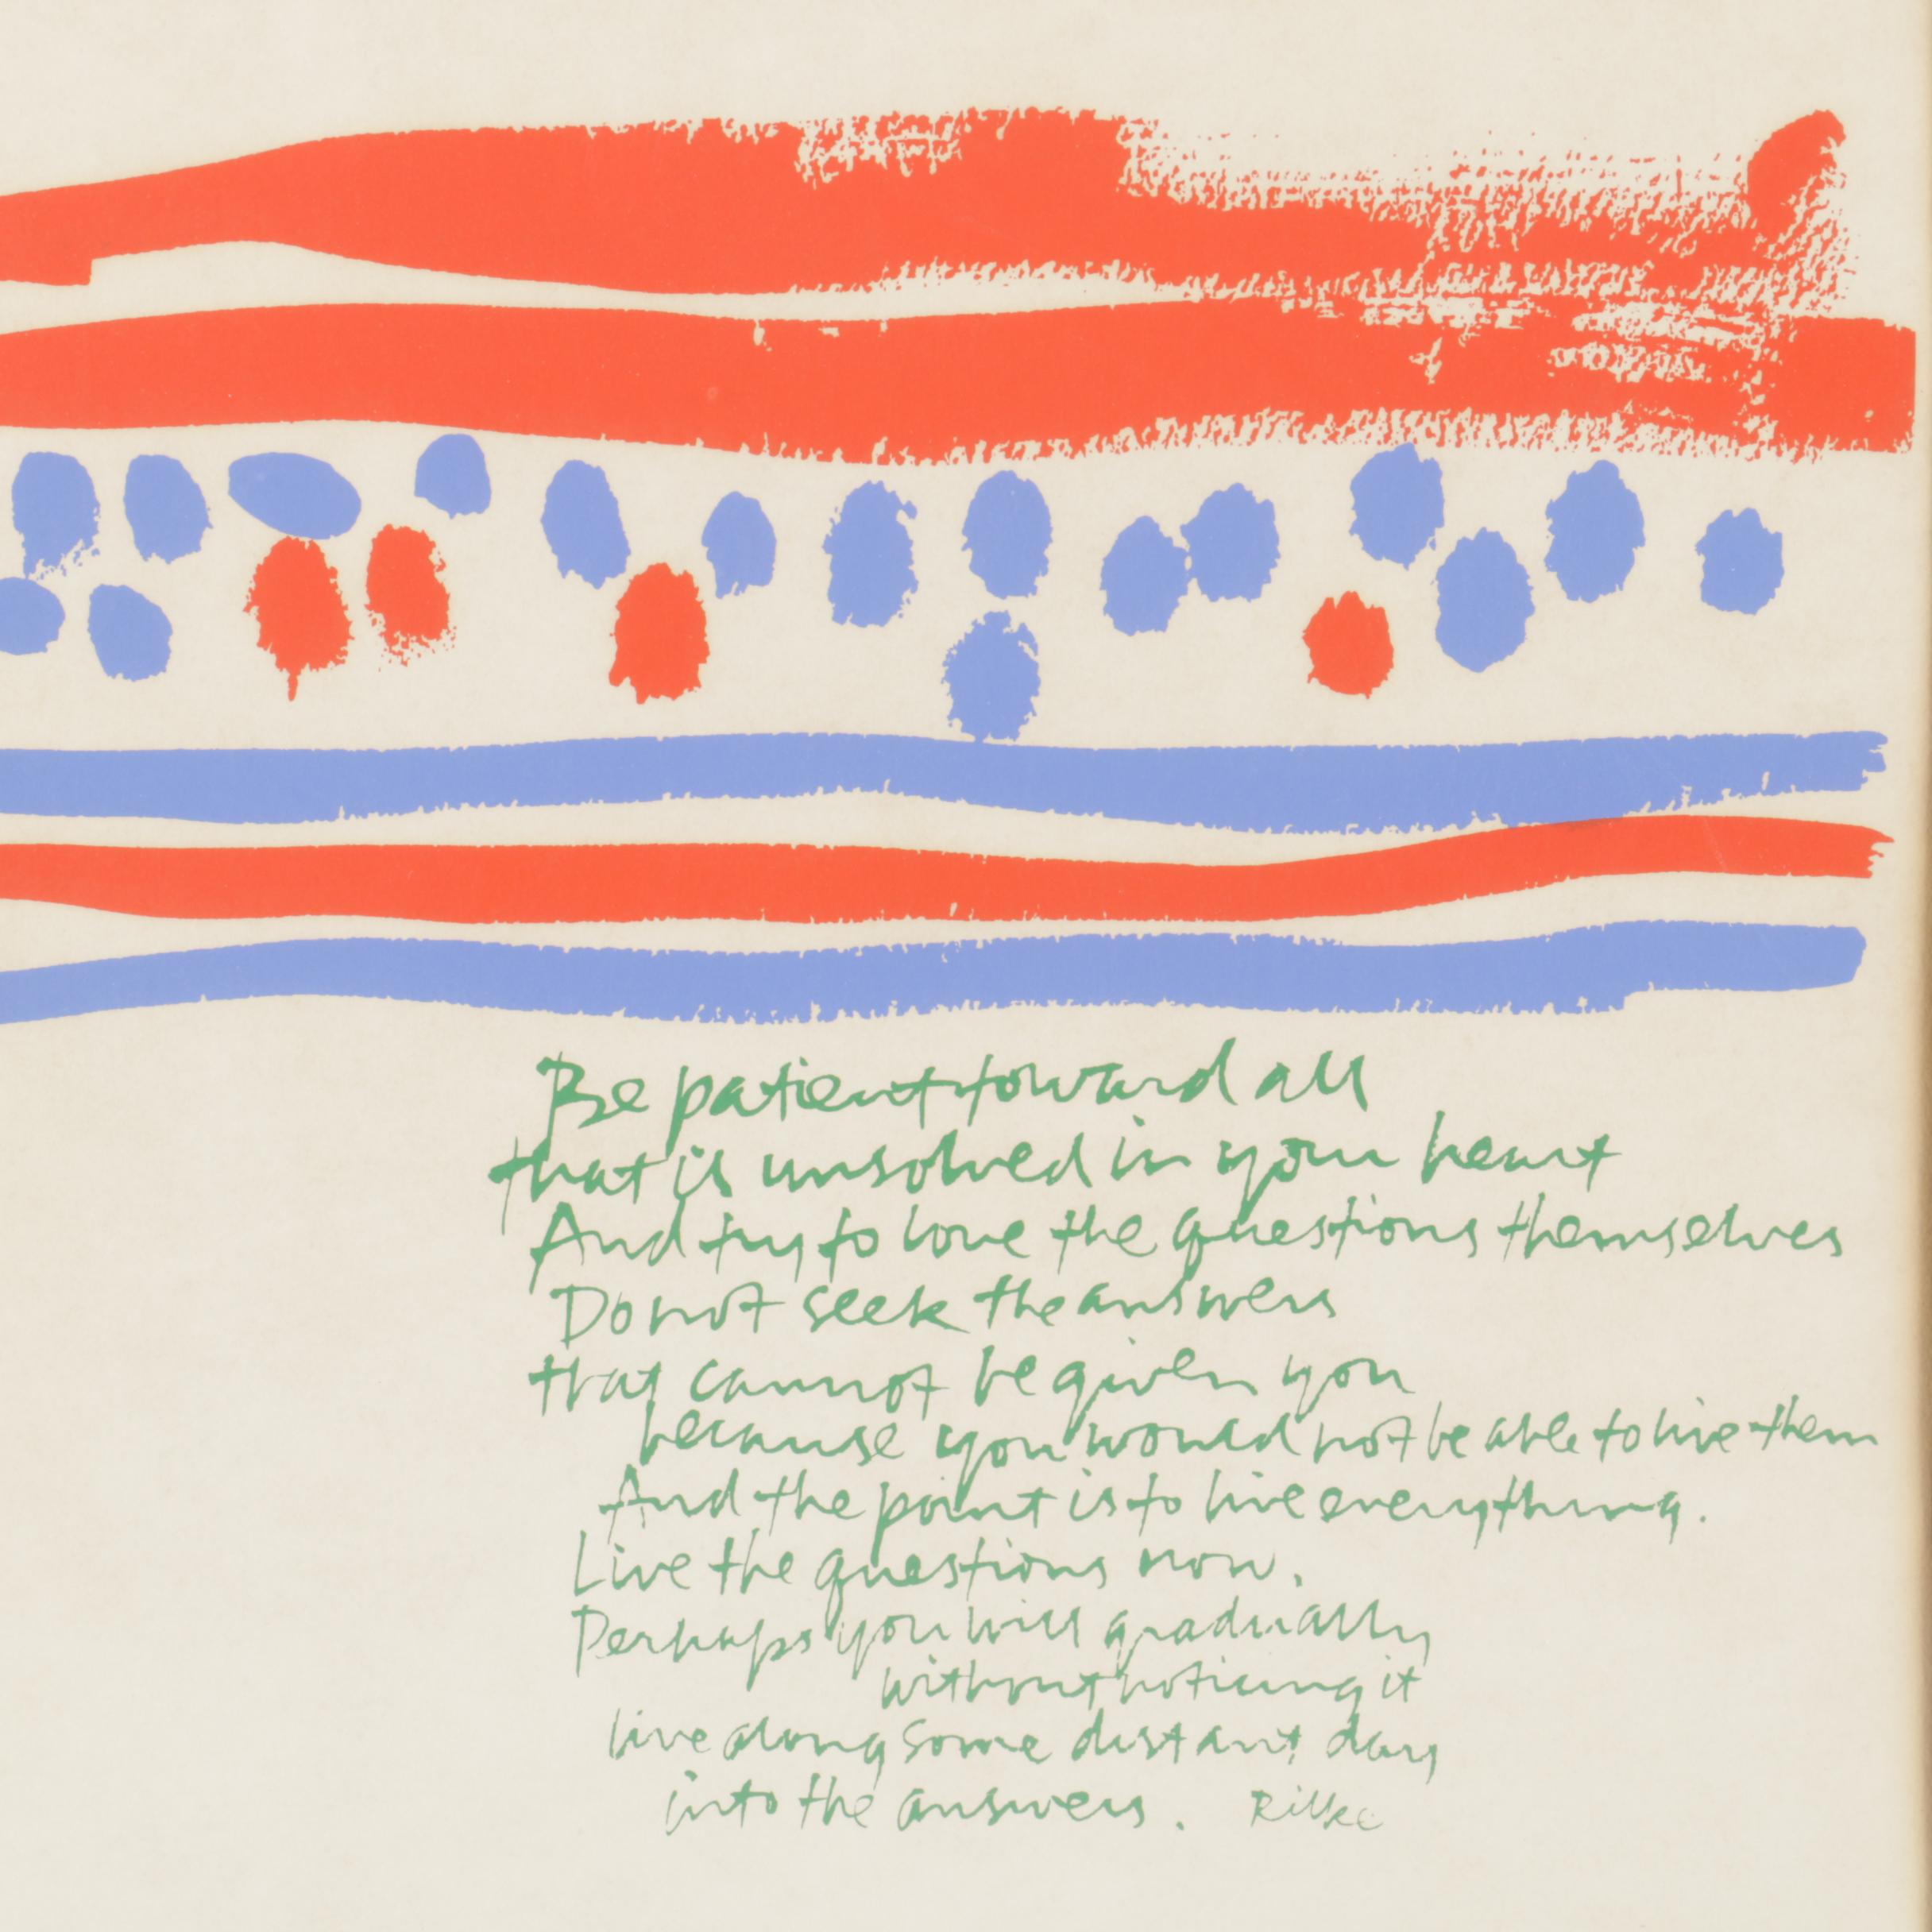 Be patient toward all
that is unsolved in your heart
And try to love the questions themselves
Do not seek the answers
that cannot be given you
because you would not be able to live them
And the point is to live everything.
Live the questions now.
Perhaps you will gradually
without noticing it
live along some distant day
into the answers. Rilke